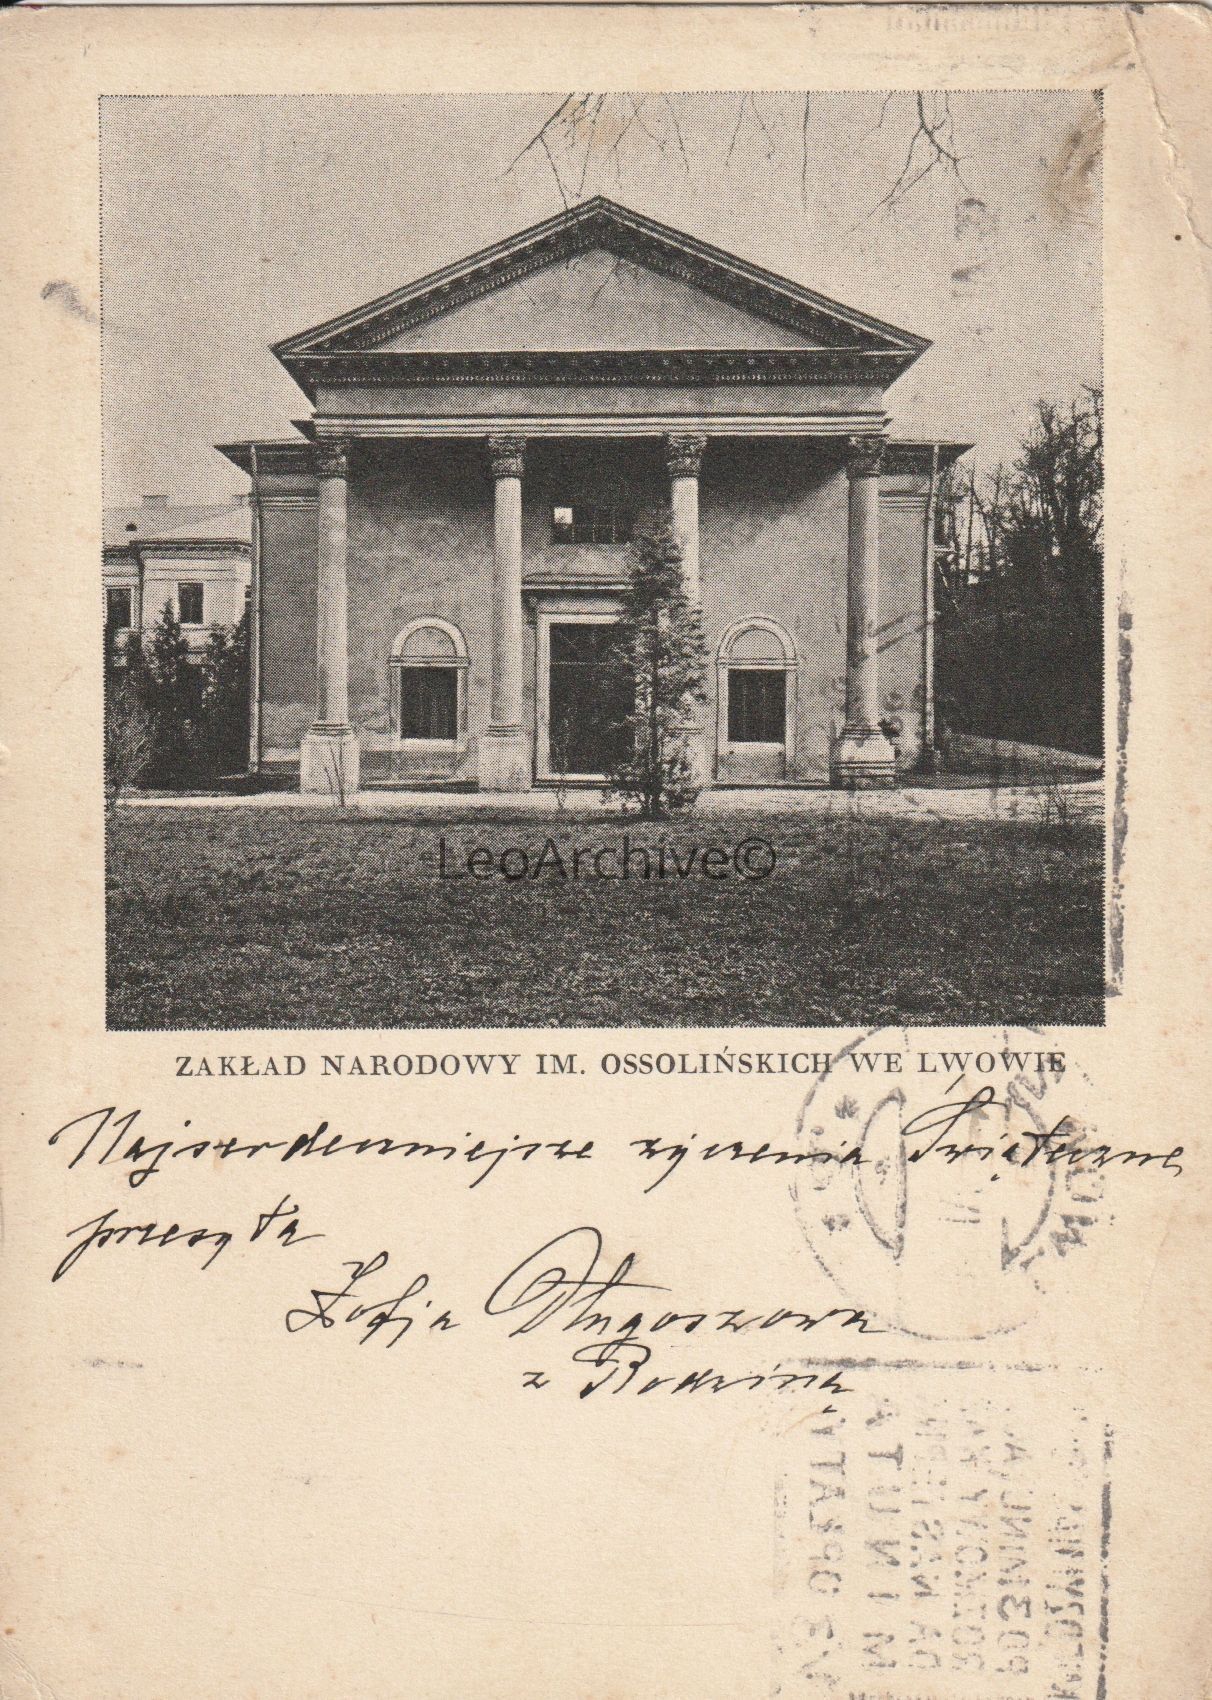 LeoArchive©
ZAKŁAD NARODOWY IM. OSSOLIŃSKICH WE LWOWIE
Najserdeczniejsze życzenia Świąteczne
przesyła
Zofja Długoszowa
z Rodziną